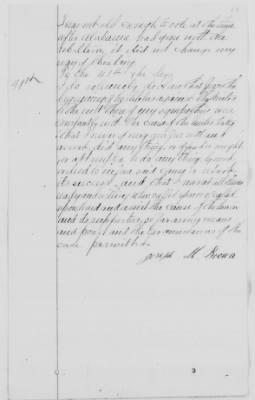 I was not old enough to vote at the time
after Alabama had gone with the
rebellion, it did not change my
way of thinking
41st To the 41st he says
I do solemnly declare that from the
beginning of hostilities against the United
to the end thereof my sympathies were
constantly with the cause of the United States
that I never of my own free will and
accord did any thing, or
or attempted to do any thing by word
or deed to injure said cause or retard
its success and that I was at all times
ready and willing when called upon
to aid and assist the cause of the Union
and its supporters so far as my means
and power and the circumstances of the
case permitted.
Joseph M. Brown